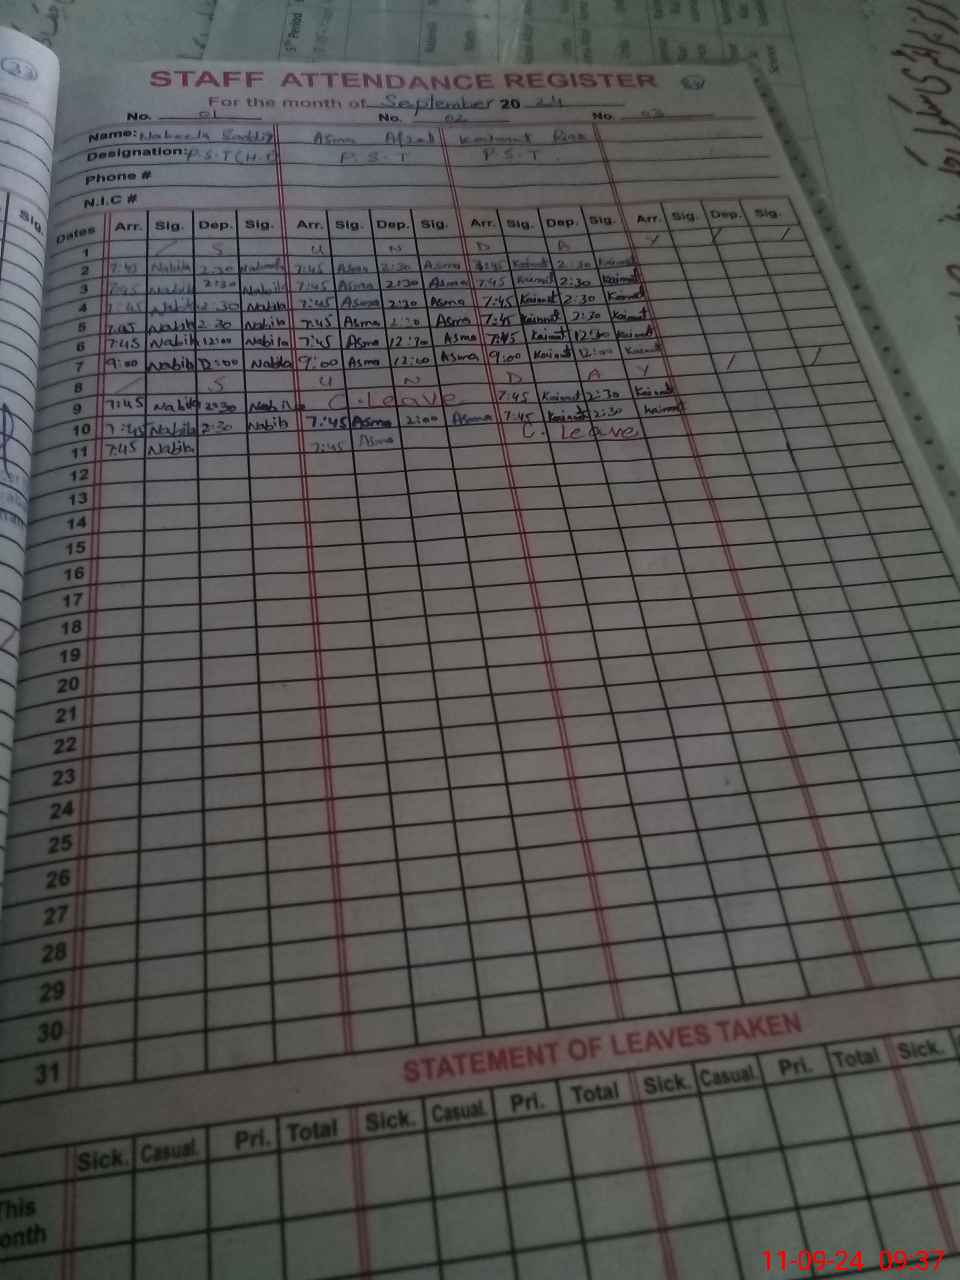 STAFF ATTENDANCE REGISTER
For the month of September 20 24
No. 01 No. 02 No. 03
Name: Nabeela Asma Afzal
Designation: P.S.T (H.T) P.S.T P.S.T.
Phone #
N.I.C #
Dates Arr. Sig. Dep. Sig. Arr. Sig. Dep. Sig. Arr. Sig. Dep. Sig. Arr. Sig. Dep. Sig.
1 S U N D A Y
2 7:45 Nabila 2:30 7:45 Asma 2:30 Asma 7:45 Kainat 2:30 Kainat
3 7:45 Nabila 2:30 Nabila 7:45 Asma 2:30 Asma 7:45 Kainat 2:30 Kainat
4 7:45 Nabila 2:30 Nabila 7:45 Asma 2:30 Asma 7:45 Kainat 2:30 Kainat
5 7:45 Nabila 2:30 Nabila 7:45 Asma 2:30 Asma 7:45 Kainat 2:30 Kainat
6 7:45 Nabila 12:00 Nabila 7:45 Asma 12:30 Asma 7:45 Kainat 12:30 Kainat
7 9:00 Nabila 12:00 Nabila 9:00 Asma 12:00 Asma 9:00 Kainat 12:00 Kainat
8 S U N D A Y
9 7:45 Nabila 2:30 Nabila C.Leave 7:45 Kainat 2:30 Kainat
10 7:45 Nabila 2:30 Nabila 7:45 Asma 2:00 Asma 7:45 Kainat 2:30 Kainat
11 7:45 Nabila 7:45 Asma C. Leave
12
13
14
15
16
17
18
19
20
21
22
23
24
25
26
27
28
29
30
31
STATEMENT OF LEAVES TAKEN
Sick. Casual. Pri. Total Sick. Casual. Pri. Total Sick. Casual. Pri. Total Sick.
This
month
11-09-24 09:37